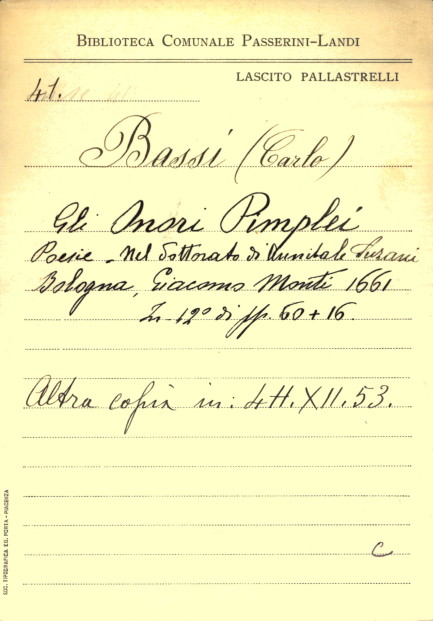 BIBLIOTECA COMUNALE PASSERINI-LANDI
LASCITO PALLASTRELLI
41.
Bassi (Carlo)
Gli Onori Pimplei
Poesie - Nel Dottorato di Annibale
Bologna, Giacomo Monti 1661
In 12° di pp. 60 + 16.
Altra copia in: 4H.XII.53.
C
SOC. TIPOGRAFICA ED. PORTA - PIACENZA